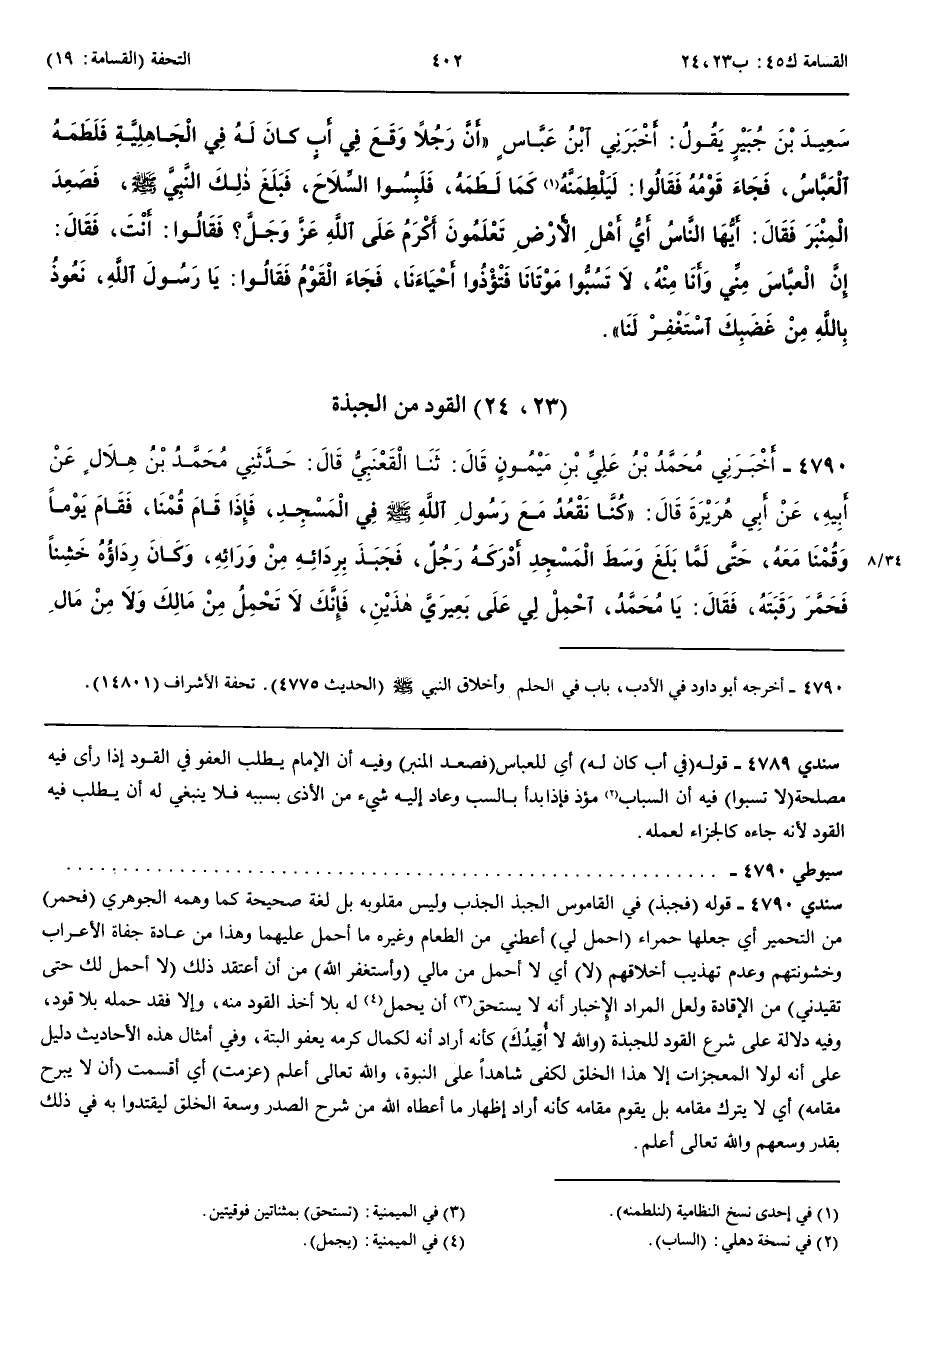 القسامة ك٤٥: ب٢٣، ٢٤ ٤٠٢ التحفة (القسامة: ١٩)
سَعِيدَ بْنَ جُبَيْرٍ يَقُولُ: أَخْبَرَنِي ٱبْنُ عَبَّاسٍ «أَنَّ رَجُلاً وَقَعَ فِي أَبٍ كَانَ لَهُ فِي الْجَاهِلِيَّةِ فَلَطَمَهُ
ٱلْعَبَّاسُ، فَجَاءَ قَوْمُهُ فَقَالُوا: لَيَلْطِمَنَّهُ(١) كَمَا لَطَمَهُ، فَلَبِسُوا السِّلَاحَ، فَبَلَغَ ذٰلِكَ النَّبِيَّ ﷺ، فَصَعِدَ
الْمِنْبَرَ فَقَالَ: أَيُّهَا النَّاسُ أَيُّ أَهْلِ الْأَرْضِ تَعْلَمُونَ أَكْرَمُ عَلَى اللَّهِ عَزَّ وَجَلَّ؟ فَقَالُوا: أَنْتَ، فَقَالَ:
إِنَّ الْعَبَّاسَ مِنِّي وَأَنَا مِنْهُ، لَا تَسُبُّوا مَوْتَانَا فَتُؤْذُوا أَحْيَاءَنَا، فَجَاءَ الْقَوْمُ فَقَالُوا: يَا رَسُولَ ٱللَّهِ، نَعُوذُ
بِاللَّهِ مِنْ غَضَبِكَ ٱسْتَغْفِرْ لَنَا».
(٢٣، ٢٤) القود من الجبذة
٤٧٩٠ - أَخْبَرَنِي مُحَمَّدُ بْنُ عَلِيِّ بْنِ مَيْمُونٍ قَالَ: ثَنَا الْقَعْنَبِيُّ قَالَ: حَدَّثَنِي مُحَمَّدُ بْنُ هِلَالٍ عَنْ
أَبِيهِ، عَنْ أَبِي هُرَيْرَةَ قَالَ: «كُنَّا نَقْعُدُ مَعَ رَسُولِ ٱللَّهِ ﷺ فِي الْمَسْجِدِ، فَإِذَا قَامَ قُمْنَا، فَقَامَ يَوْماً
وَقُمْنَا مَعَهُ، حَتَّى لَمَّا بَلَغَ وَسَطَ الْمَسْجِدِ أَدْرَكَهُ رَجُلٌ، فَجَبَذَ بِرِدَائِهِ مِنْ وَرَائِهِ، وَكَانَ رِدَاؤُهُ خَشِناً ٨/٣٤
فَحَمَّرَ رَقَبَتَهُ، فَقَالَ: يَا مُحَمَّدُ، ٱحْمِلْ لِي عَلَى بَعِيرَيَّ هٰذَيْنِ، فَإِنَّكَ لَا تَحْمِلُ مِنْ مَالِكَ وَلَا مِنْ مَالِ
٤٧٩٠ - أخرجه أبو داود في الأدب، باب في الحلم وأخلاق النبي ﷺ (الحديث ٤٧٧٥). تحفة الأشراف (١٤٨٠١).
سندي ٤٧٨٩ - قوله(في أب كان له) أي للعباس(فصعد المنبر) وفيه أن الإمام يطلب العفو في القود إذا رأى فيه
مصلحة(لا تسبوا) فيه أن السباب(٢) مؤذ فإذا بدأ بالسب وعاد إليه شيء من الأذى بسببه فلا ينبغي له أن يطلب فيه
القود لأنه جاءه كالجزاء لعمله.
سيوطي ٤٧٩٠ - ......................................................
سندي ٤٧٩٠ - قوله (فجبذ) في القاموس الجبذ الجذب وليس مقلوبه بل لغة صحيحة كما وهمه الجوهري (فحمر)
من التحمير أي جعلها حمراء (احمل لي) أعطني من الطعام وغيره ما أحمل عليهما وهذا من عادة جفاة الأعراب
وخشونتهم وعدم تهذيب أخلاقهم (لا) أي لا أحمل من مالي (وأستغفر الله) من أن أعتقد ذلك (لا أحمل لك حتى
تقيدني) من الإقادة ولعل المراد الإخبار أنه لا يستحق(٣) أن يحمل(٤) له بلا أخذ القود منه، وإلا فقد حمله بلا قود،
وفيه دلالة على شرع القود للجبذة (والله لا أُقِيدُكَ) كأنه أراد أنه لكمال كرمه يعفو البتة، وفي أمثال هذه الأحاديث دليل
على أنه لولا المعجزات إلا هذا الخلق لكفى شاهداً على النبوة، والله تعالى أعلم (عزمت) أي أقسمت (أن لا يبرح
مقامه) أي لا يترك مقامه بل يقوم مقامه كأنه أراد إظهار ما أعطاه الله من شرح الصدر وسعة الخلق ليقتدوا به في ذلك
بقدر وسعهم والله تعالى أعلم.
(١) في إحدى نسخ النظامية (لنلطمنه). (٣) في الميمنية: (تستحق) بمثناتين فوقيتين.
(٢) في نسخة دهلي: (الساب). (٤) في الميمنية: (يجمل).